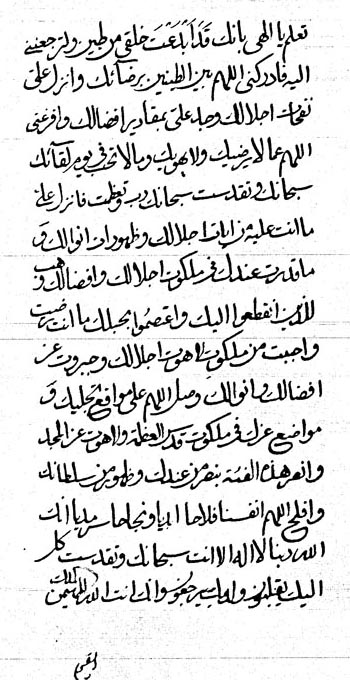 تعلم يا الهي بانك قد ابدعت خلقي من طين ولترجعنني
اليه فادركني اللهم بين الطينين برضائك وانزل علي
نفحات اجلالك وجد علي بمقادير افضالك وافرغني
اللهم عما لا يرضيك ولا يهويك ومالا في يوم لقائك
سبحانك وتقدست سبحانك وتعظمت فانزل علي
ما انت عليه من ايات اجلالك وظهورات انوالك و
ما قدرت عندك في ملكوت اجلالك وافضالك وهب
للذين انقطعوا اليك واعتصموا بحبلك ما انت رضيت
واحببت من ملكوت لاهوت اجلالك وجبروت عز
افضالك وانوالك وصل اللهم على مواقع تجليك و
مواضع عزك في ملكوت قدس العظمة ولاهوت عز المجد
وانصر هذه الفئة بنصر من عندك وظهور من سلطانك
وافلح اللهم انفسنا فلاحا ونجاحا انك
الله ربنا لا اله الا انت سبحانك وتقدست كل
اليك يقبلون يرجعون وانك انت الملك المهيمن
القيم